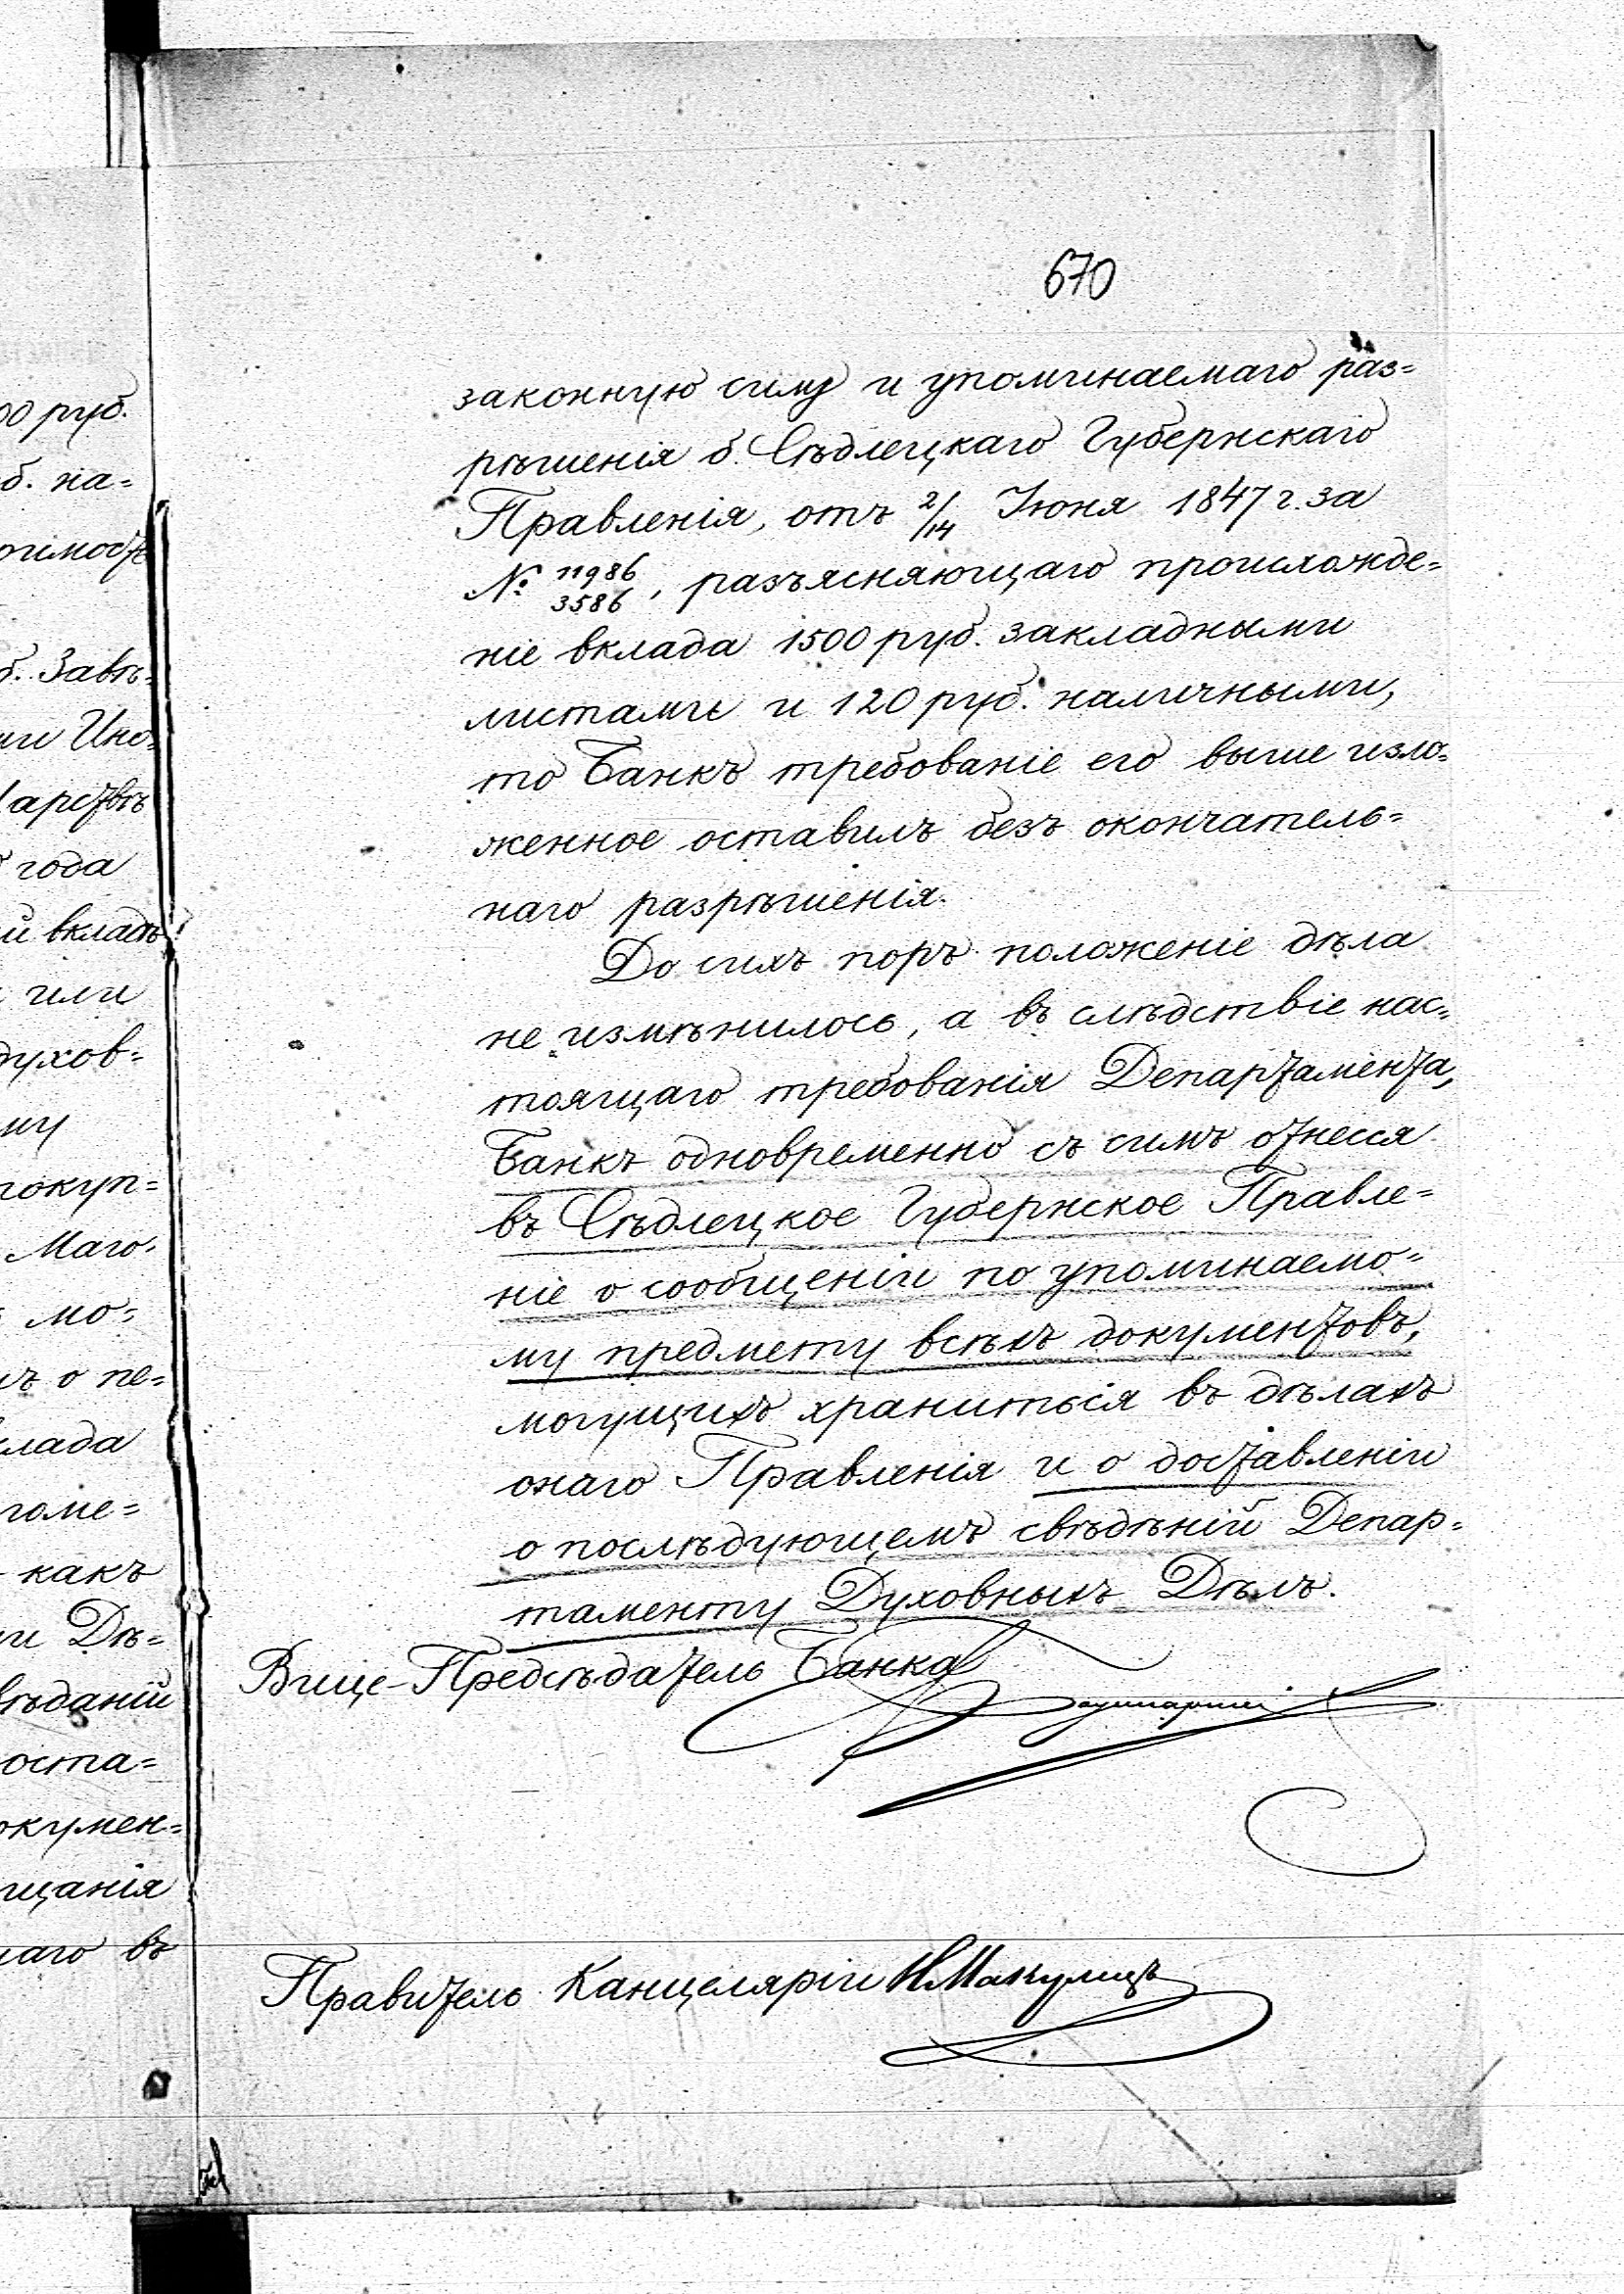 670
законную силу и упоминаемаго раз=
рѣшенія б. Сѣдлецкаго Губернскаго
Правленія, отъ 2/14 Іюня 1847 г. за
№ 11986/3586, разъясняющаго происхожде=
ніе вклада 1500 руб. закладными
листами и 120 руб. наличными,
то Банкъ требованіе его выше изло=
женное оставилъ безъ окончатель=
наго разрѣшенія.
До сихъ поръ положеніе дѣла
не измѣнилось, а въ слѣдствіе нас=
тоящаго требованія Департамента,
Банкъ одновременно съ симъ отнесся
въ Сѣдлецкое Губернское Правле=
ніе о сообщеніи по упоминаемо=
му предмету всѣхъ документовъ,
могущихъ храниться въ дѣлахъ
онаго Правленія и о доставленіи
о послѣдующемъ свѣдѣній Депар=
таменту Духовныхъ Дѣлъ.
Вице-Предсѣдатель Банка
Правитель Канцеляріи
00 руб.
б. на=
б. Завѣ=
года
или
духов=
покуп=
Маго=
мо=
ъ о пе=
клада
как
и Дѣ=
оста=
окумен=
щанія
наго въ